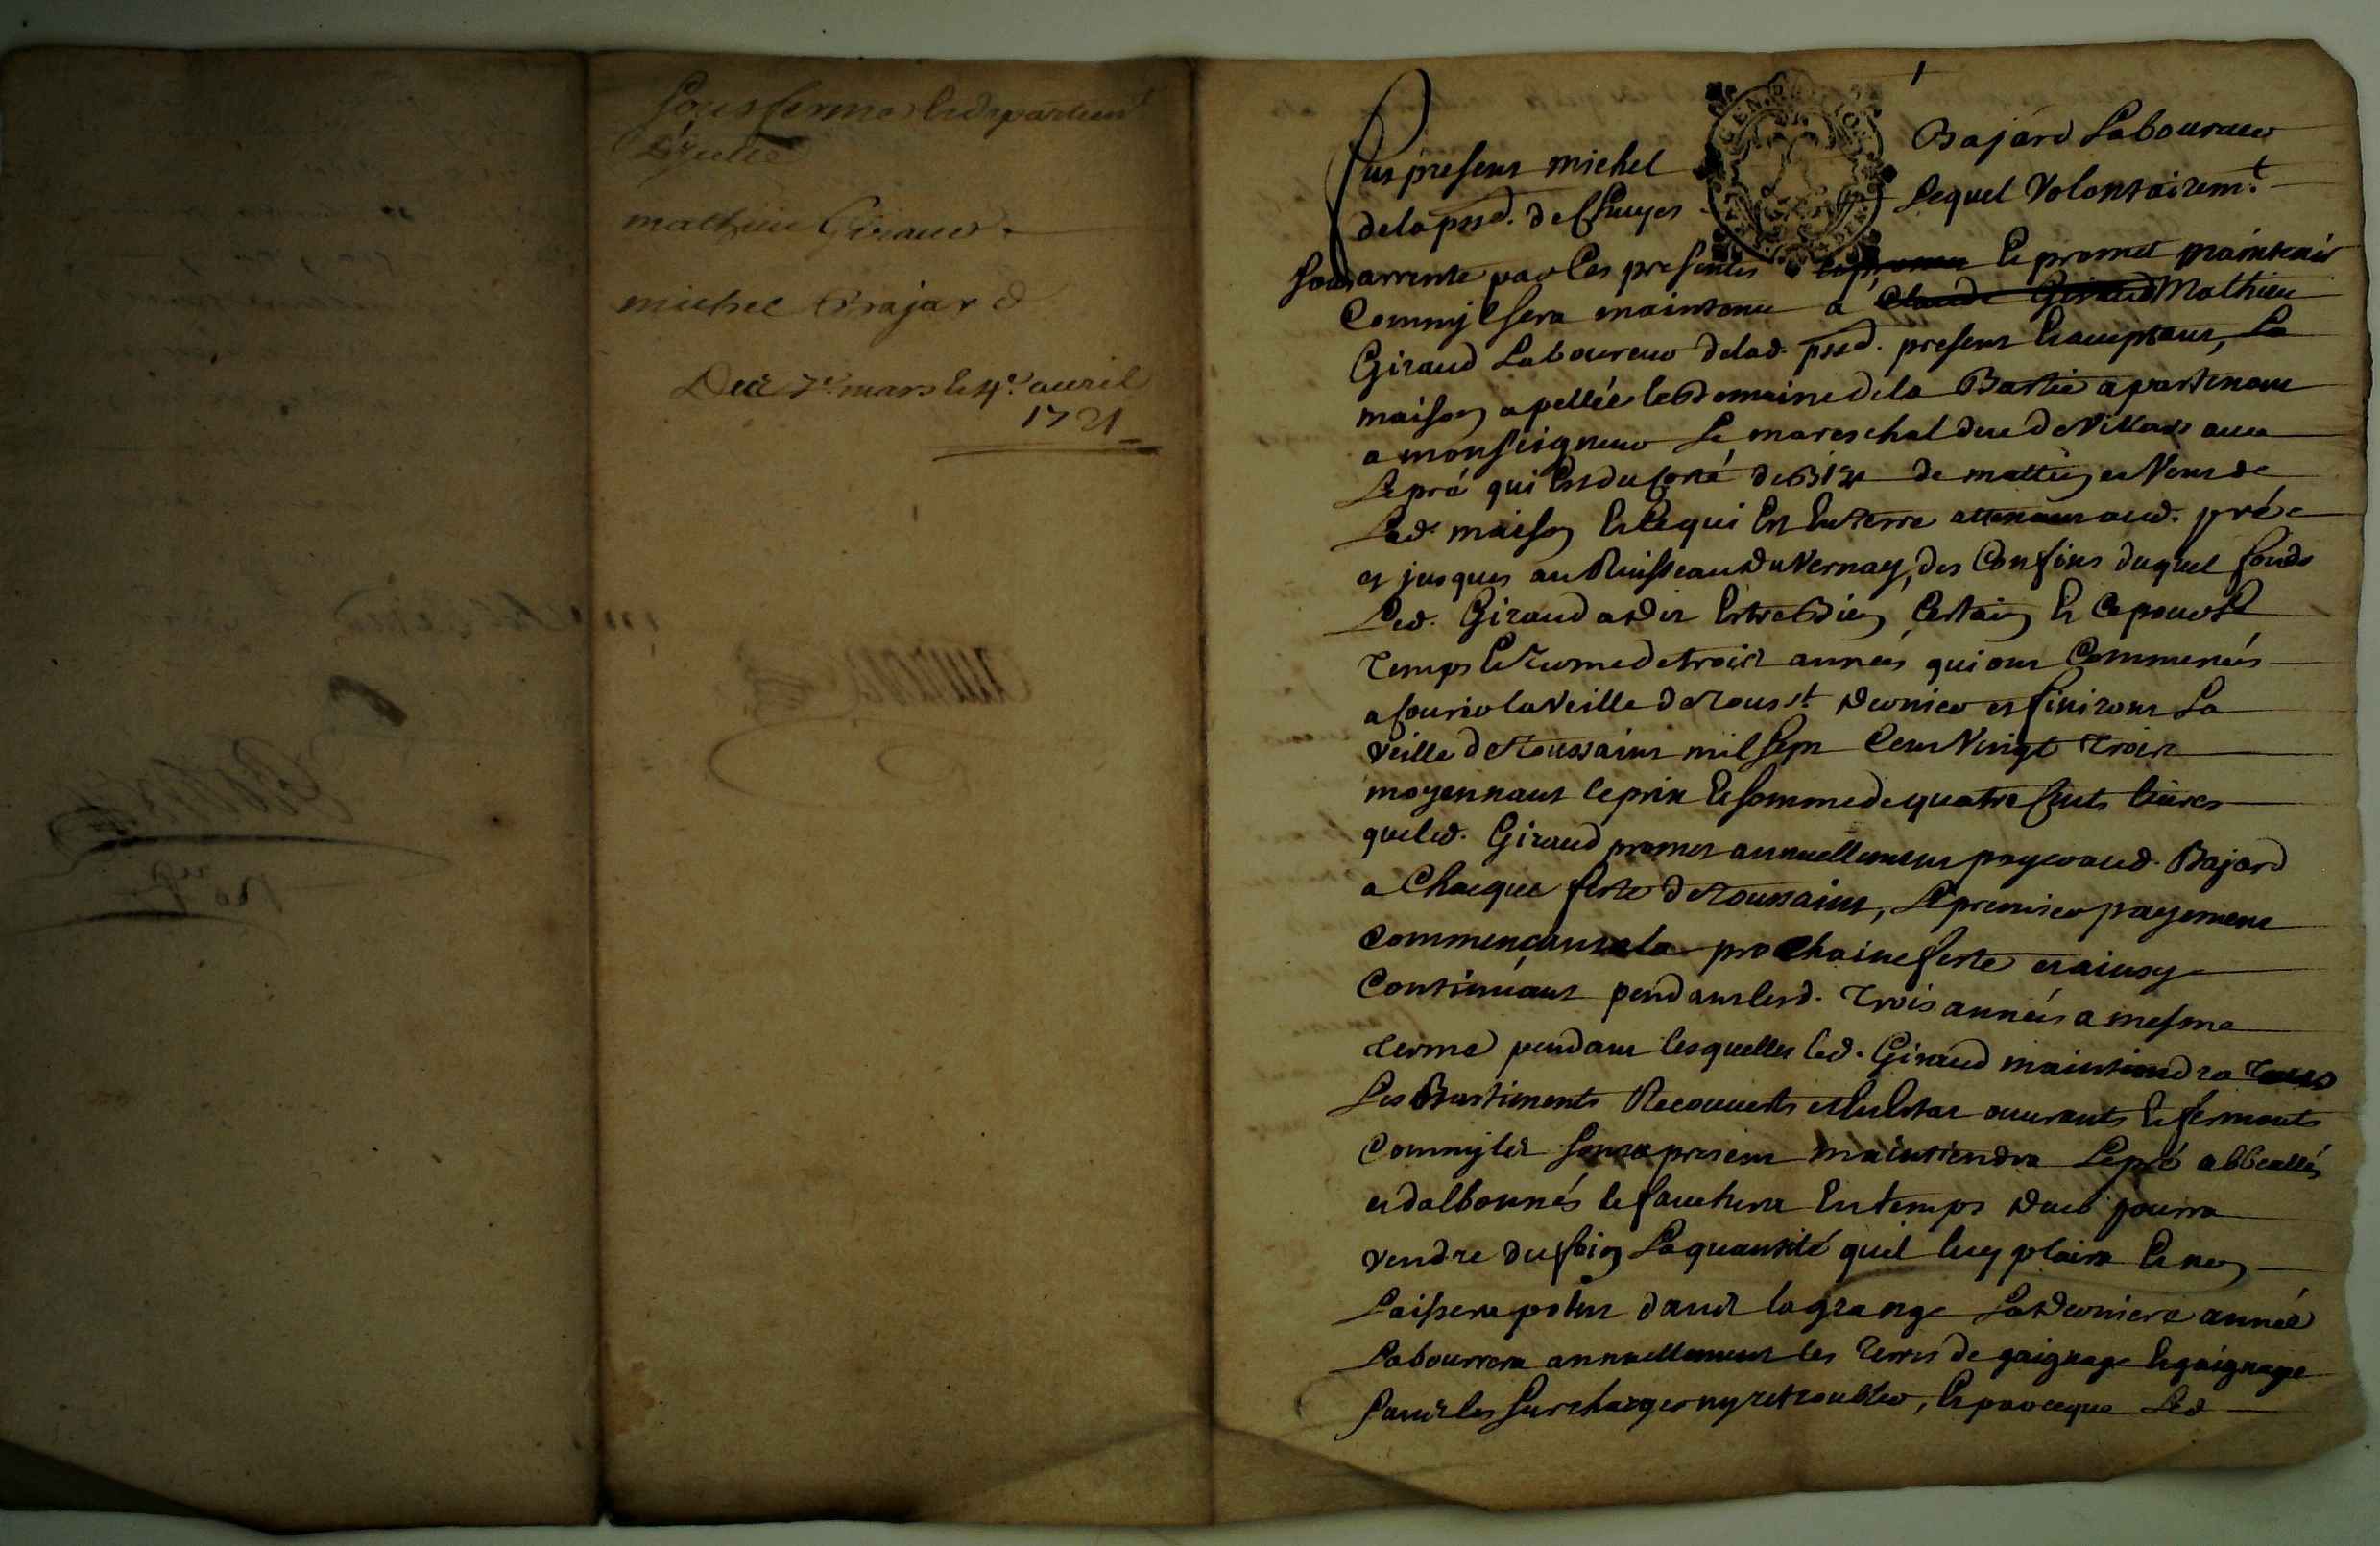 Sousferme
mathieu Giraud
michel Bajard
Des 7e. mars & 4e. auril
1721
Fut present michel Bajard Laboureur
dela prd. de Lequel Volontairemt.
Sousarrente par Ces presentes & promet maintenir
Comm'il sera maintenu a Claude Giraud Mathieu
Giraud Laboureur delad. present & acceptant, La
maison apellée le Domaine de la Bastie apartenant
a monseigneur Le mareschal duc de Villars avec
Le pré qui Est du Costé de Bize de mattin et Vent de
Lad. maison & Ce qui Est En Terre attenant aud. pré
et jusques au Ruisseau du Vernay, des Confins duquel fonds
Led. Giraud a dit Estre Bien Certain & Ce pour Le
Temps & Terme de trois années qui ont Commencés
a Courir la Veille de Touss.t Dernier et finiront La
Veille de Toussaint mil sept Cent Vingt Trois
moyennant le prix & somme de quatre livres
que led. Giraud promet annuellement payer aud. Bajard
a Chacque feste de Toussaint, Le premier payement
Commençant a la prochaine feste et ainsy
Continuant pendant lesd. Trois années a mesme
Terme pendant lesquelles led. Giraud maintiendra
Les Bastiments Recouverts et En Estat ouvrants & fermants
Comm'ils sont a present maintiendra Le pré
et le fauchera En temps pourra
Vendre du foin La quantité qu'il luy plaira & n'en
Laissera point dans la grange La Derniere année
Labourrera annuellement les Terres de gaignage En gaignage
sans les surcharger ny retroubler, & parceque Led